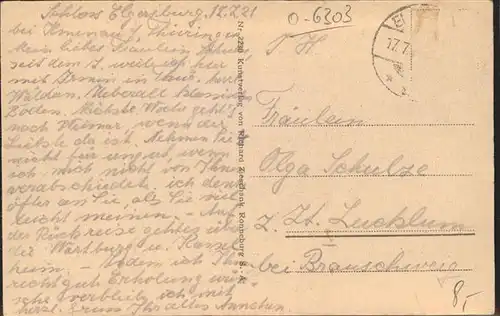 Schloss Elgersburg, 17.7.21
bei Ilmenau i. Thüringen
Mein liebes Fräulein Schulze
seit dem 7. weilen wir hier
mit Armin in Thür. herrl.
Wäldern. Ueberall blauen
Böden. Nächste Woche geht's
nach Weimar, wenn die
Liebste da ist. Nehmen Sie
nicht für ungut, wenn
ich mich nicht von Ihnen
verabschiedete. ich denke
öfter an Sie, als Sie viel-
leicht meinen. - Auf
der Rückreise gehts über
die Wartburg u. Kassel
heim. - Indem ich Ihnen
recht gut Erholung wün-
sche verbleib ich mit
herzl. Gruss Ihr altes Annchen.
Nr. 2280 Kunstverlag von Richard Zieschank, Ronneburg S.-A.
0-6303
17.7.
Fräulein
Olga Schulze
z. Zt. Lucklum
bei Braunschweig
8,-